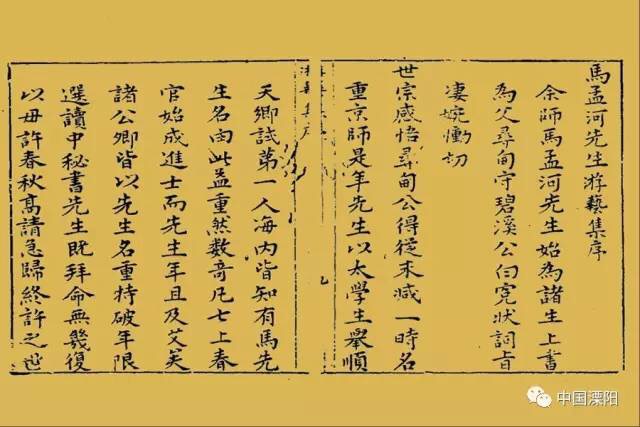 馬孟河先生游藝集序
余師馬孟河先生始為諸生上書
為父尋甸守碧溪公白寃狀詞旨
凄婉慟切
世宗感悟尋甸公得從末減一時名
重京師是年先生以太學生舉順
天鄉試第一人海内皆知有馬先
生名由此益重然數奇凡七上春
官始成進士而先生年且及艾矣
諸公卿皆以先生名重持破年限
選讀中秘書先生既拜命無幾復
以毋許春秋高請急歸終許之
中国溧阳